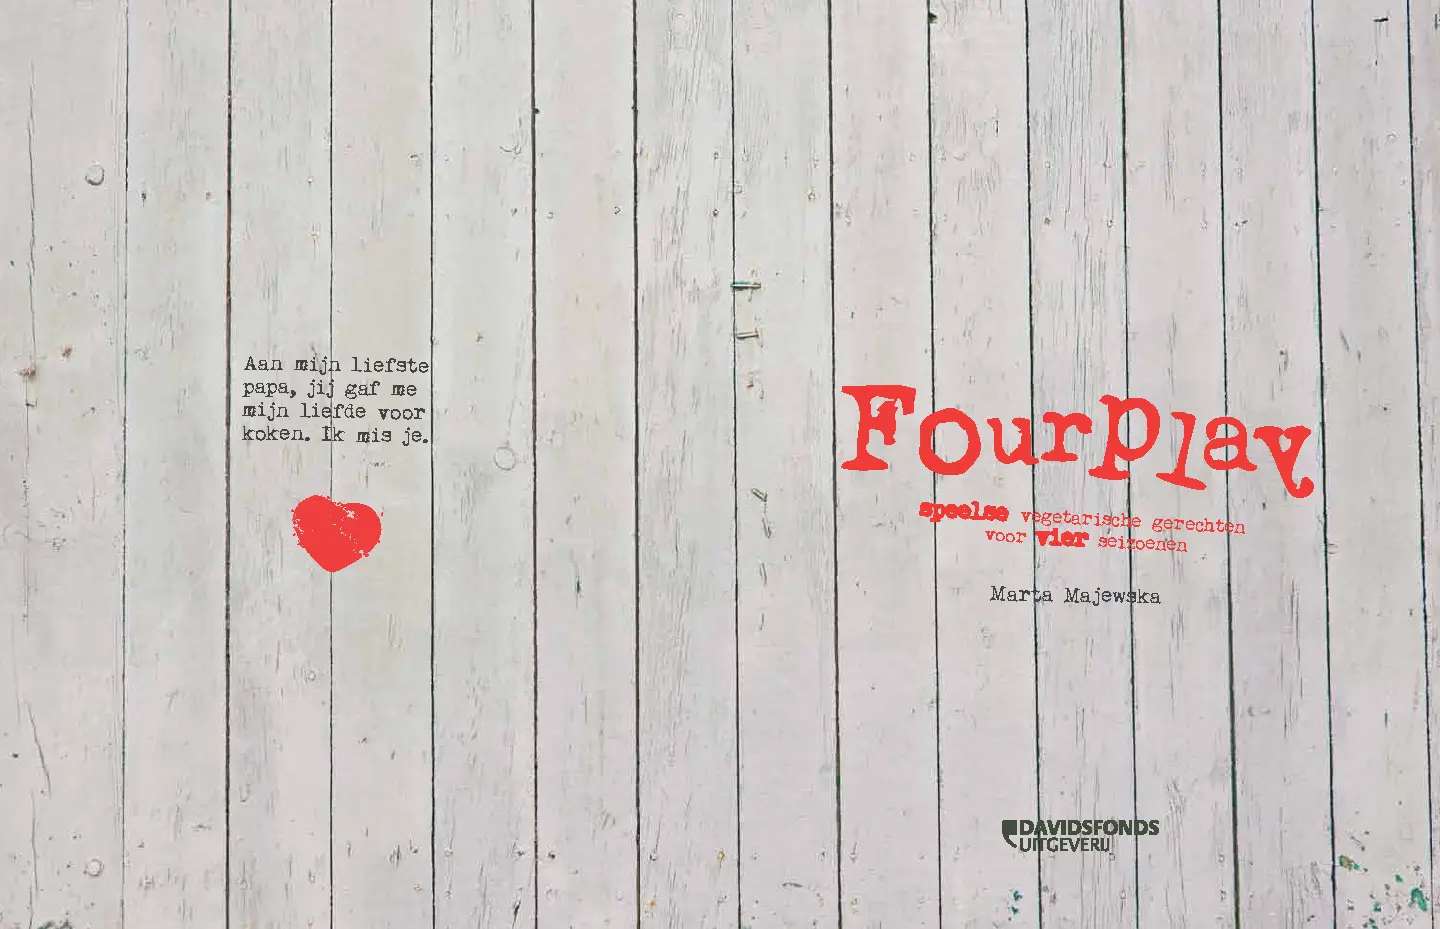 Aan mijn liefste
papa, jij gaf me
mijn liefde voor
koken. Ik mis je.
Fourplay
speelse vegetarische gerechten
voor vier seizoenen
Marta Majewska
DAVIDSFONDS
UITGEVERIJ